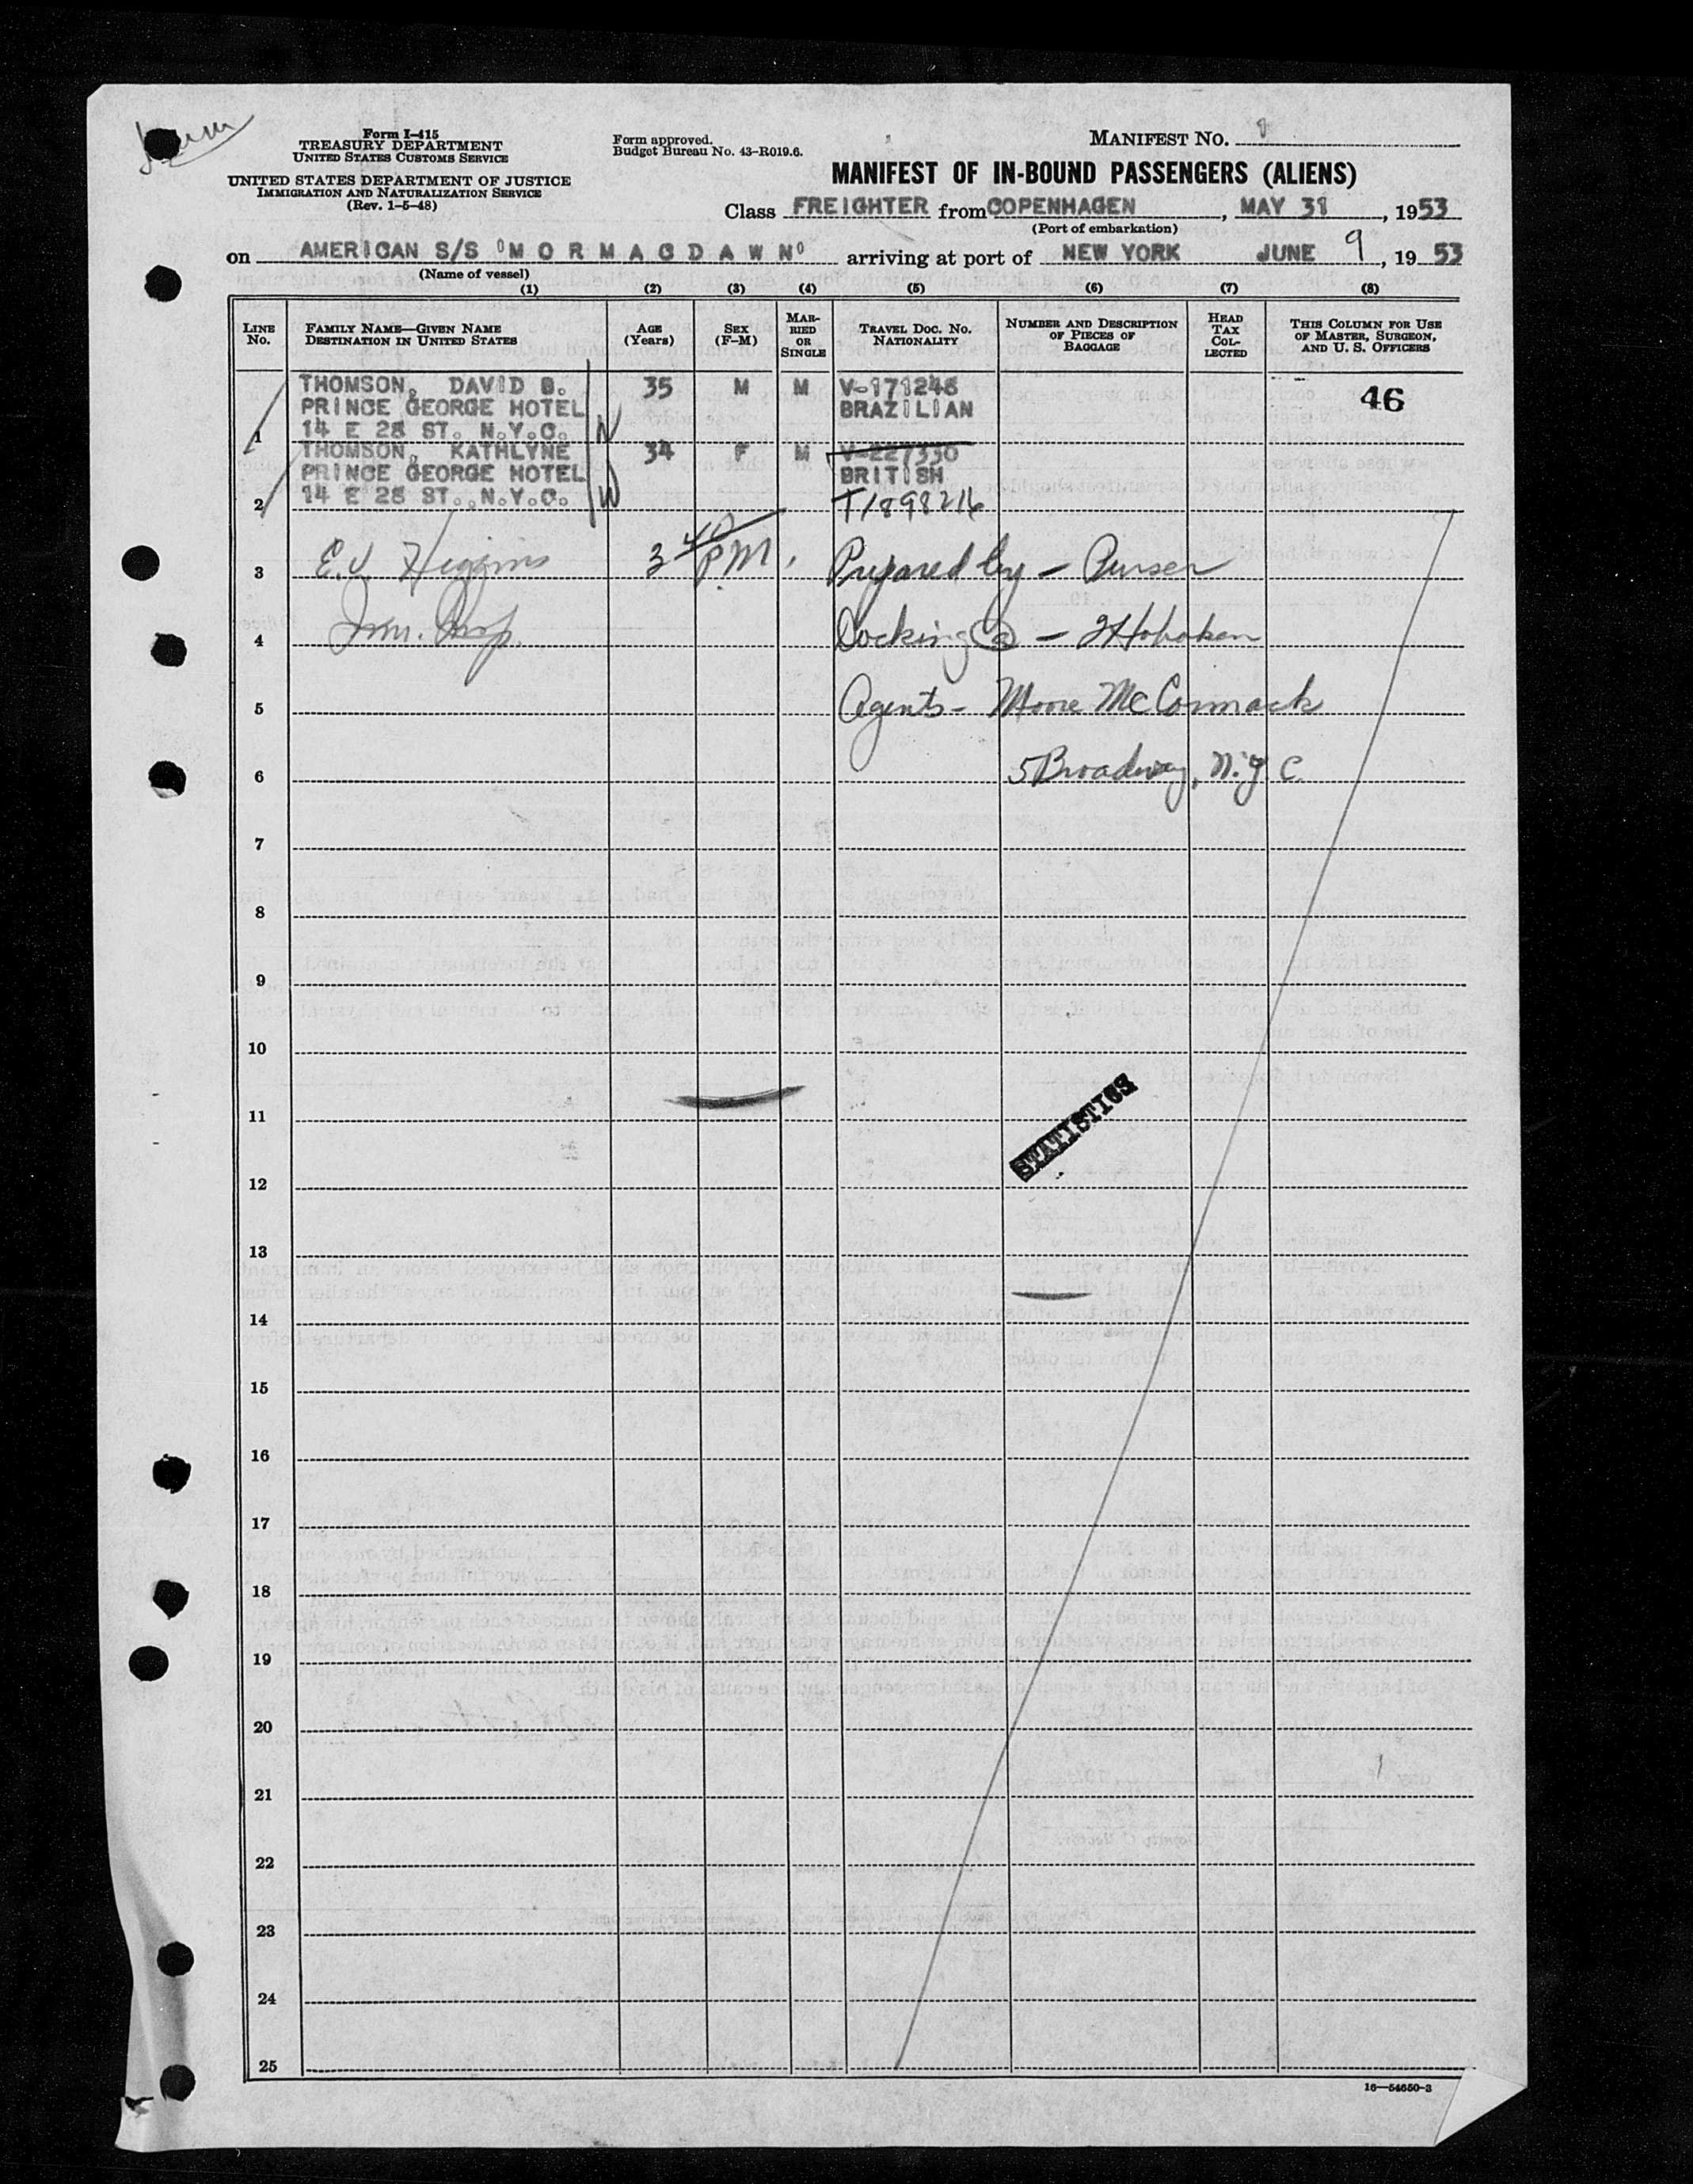 Form I-415
TREASURY DEPARTMENT
UNITED STATES CUSTOMS SERVICE
UNITED STATES DEPARTMENT OF JUSTICE
IMMIGRATION AND NATURALIZATION SERVICE
(Rev. 1-5-48)
Form approved.
Budget Bureau No. 43-R019.6.
MANIFEST NO.
MANIFEST OF IN-BOUND PASSENGERS (ALIENS)
Class FREIGHTER from COPENHAGEN, MAY 31, 1953
(Port of embarkation)
on AMERICAN S/S "M O R M A C D A W N" arriving at port of NEW YORK JUNE 9, 1953
(Name of vessel)
(1) (2) (3) (4) (5) (6) (7) (8)
LINE No. FAMILY NAME—GIVEN NAME DESTINATION IN UNITED STATES AGE (Years) SEX (F-M) MARRIED OR SINGLE TRAVEL DOC. NO. NATIONALITY NUMBER AND DESCRIPTION OF PIECES OF BAGGAGE HEAD TAX COLLECTED THIS COLUMN FOR USE OF MASTER, SURGEON, AND U. S. OFFICERS
THOMSON, DAVID B. 35 M M V-171245 46
PRINCE GEORGE HOTEL BRAZILIAN
1 14 E 28 ST. N.Y.C. N
THOMSON, KATHLYNE 34 F M V-227330
PRINCE GEORGE HOTEL BRITISH
2 14 E 28 ST., N.Y.C. T1898216
3 E.J. Higgins 3 40 PM. Prepared by - Purser
4 Imm. Insp. Docking @ - Hoboken
5 Agents - Moore McCormack
6 5 Broadway, N.Y.C.
7
8
9
10
11
STATISTICS
12
13
14
15
16
17
18
19
20
21
22
23
24
25
16—54650-3